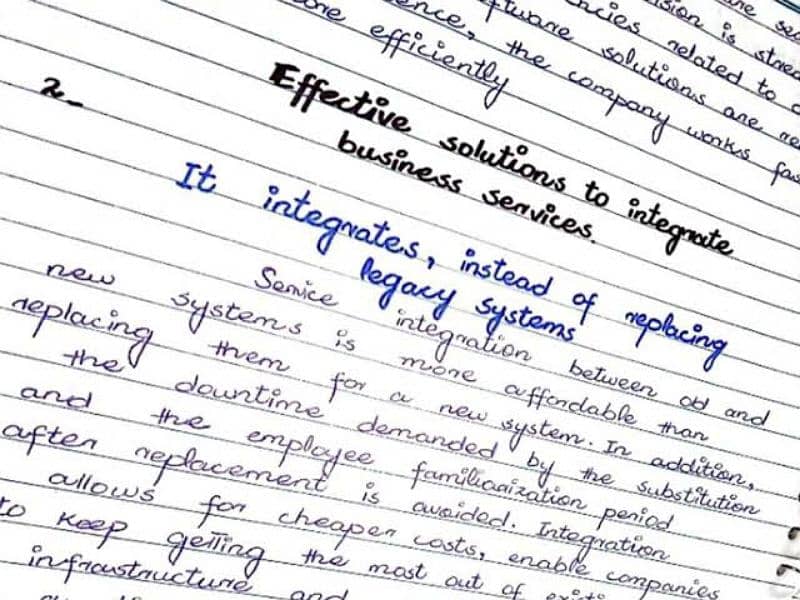 are
sion is stored
ncies related to
ence, software solutions are
more efficiently the company works
2_ Effective solutions to integrate
business services.
It integrates, instead of replacing
legacy systems
Service integration between old and
new systems is more affordable than
replacing them for a new system. In addition,
the downtime demanded by the substitution
and the employee familiarization period
after replacement is avoided. Integration
allows for cheaper costs, enable companies
to keep getting the most out of
infraustructure and